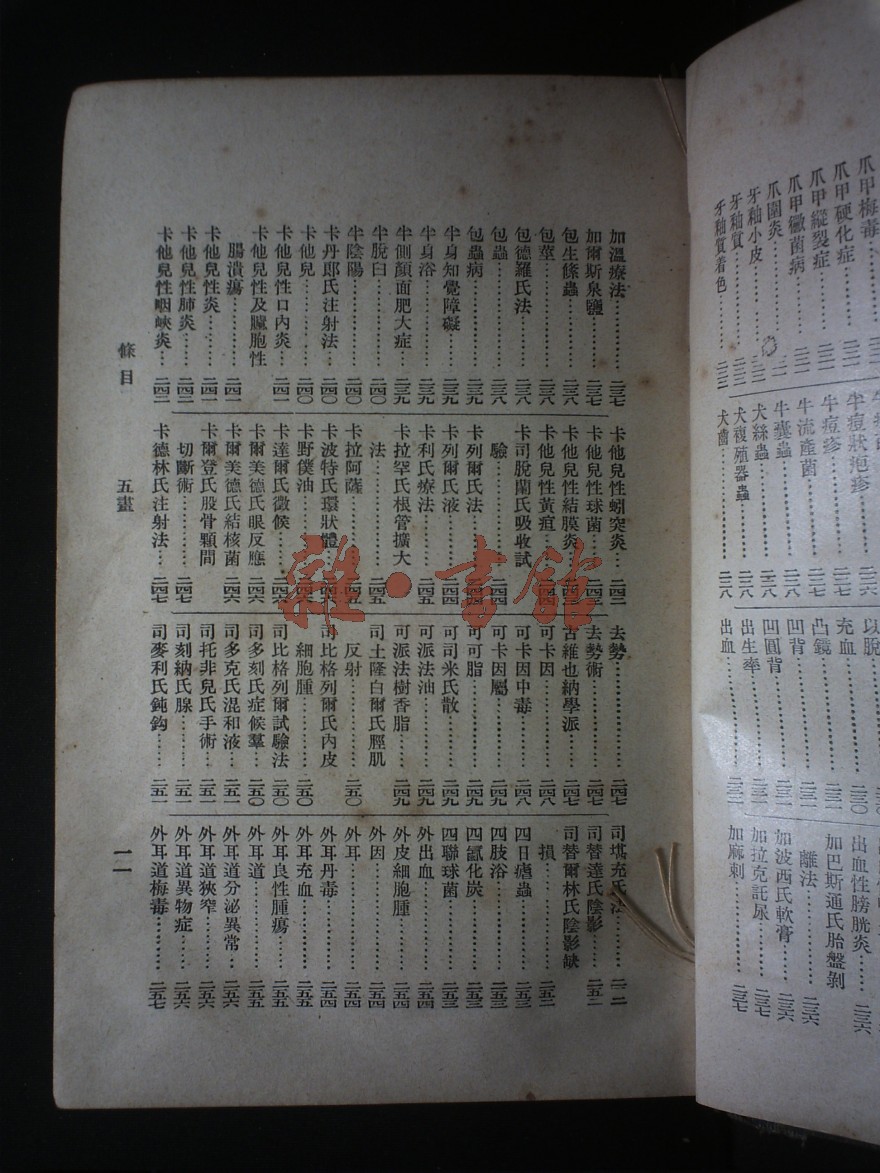 加溫療法…………二三七
加爾斯泉鹽………二三七
包生條蟲…………二三七
包莖………………二三八
包德羅氏法………二三八
包蟲………………二三八
包蟲病……………二三九
半身知覺障礙……二三九
半身浴……………二三九
半側顏面肥大症…二三九
半脫臼……………二四〇
半陰陽……………二四〇
卡丹郎氏注射法…二四〇
卡他兒……………二四〇
卡他兒性口內炎…二四一
卡他兒性及臟胞性
腸潰瘍……………二四一
卡他兒性炎………二四一
卡他兒性肺炎……二四二
卡他兒性咽峽炎…二四二
卡他兒性蚓突炎…二四二
卡他兒性球菌……二四三
卡他兒性結膜炎…二四三
卡他兒性黃疸……二四四
卡司脫蘭氏吸收試
驗…………………二四四
卡列爾氏法………二四四
卡列爾氏液………二四四
卡利氏療法………二四五
卡拉罕氏根管擴大
法…………………二四五
卡拉阿薩…………二四五
卡波特氏環狀體…二四六
卡野僕油…………二四六
卡達爾氏徵候……二四六
卡爾美德氏眼反應…二四六
卡爾美德氏結核菌…二四六
卡爾登氏股骨顆間
切斷術……………二四七
卡德林氏注射法…二四七
去勢………………二四七
去勢術……………二四七
古維也納學派……二四七
可卡因……………二四八
可卡因中毒………二四八
可卡因屬…………二四九
可可脂……………二四九
可司米氏散………二四九
可派法油…………二四九
可派法樹香脂……二四九
司土隆白爾氏脛肌
反射………………二五〇
司比格列爾氏內皮
細胞腫……………二五〇
司比格列爾試驗法…二五〇
司多刻氏症候羣…二五〇
司多克氏混和液…二五一
司托非兒氏手術…二五一
司刻納氏腺………二五一
司麥利氏鈍鈎……二五一
司堪充氏法
司替達氏陰影……二五二
司替爾林氏陰影缺
損…………………二五二
四日瘧蟲…………二五三
四肢浴……………二五三
四氯化炭…………二五三
四聯球菌…………二五三
外出血……………二五四
外皮細胞腫………二五四
外因………………二五四
外耳………………二五四
外耳丹毒…………二五四
外耳充血…………二五五
外耳良性腫瘍……二五五
外耳道……………二五五
外耳道分泌異常…二五六
外耳道狹窄………二五六
外耳道異物症……二五六
外耳道梅毒………二五七
條目
五畫
一一
爪甲梅毒
爪甲硬化症
爪甲縱裂症
爪甲黴菌病
爪圍炎
牙釉小皮
牙釉質
牙釉質着色
牛痘狀疱疹
牛痘疹
牛流產菌
牛囊蟲
犬絲蟲
犬複殖器蟲
犬齒
以脫
充血
凸鏡
凹背
凹圓背
出生率
出血
出血性膀胱炎…二三六
加巴斯通氏胎盤剝
離法……二三六
加波西氏軟膏……二三六
加拉克託尿……二三七
加麻剌……二三七
雜·書館